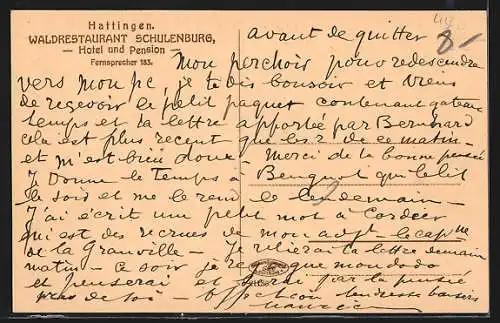 Hattingen.
WALDRESTAURANT SCHULENBURG,
— Hotel und Pension —
Fernsprecher 183.
avant de quitter
8-
Mon perchoir pour redescendre
vers mon pc, je te dis bonsoir et viens
de recevoir le petit paquet contenant gateau
temps et la lettre apportée par Bernard
cela est plus recent que les 2 de ce matin -
et m'est bien doux - Merci de la bonne pensée
Je donne le Temps à qui le lit
le soir et me le rend le lendemain -
J'ai écrit un petit mot à
qui est des recrues de mon
de la Granville - Je relierai ta lettre demain
matin - Ce soir je mon dodo
et penserai et par la pensée
près de toi - tendresses baisers